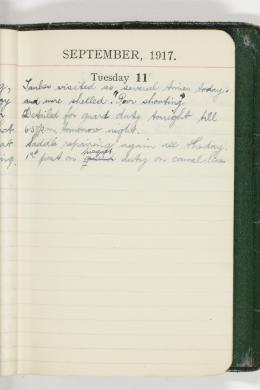 SEPTEMBER, 1917.
Tuesday 11
Taubes visited us several times today.
and were shelled. "Poor shooting"
Detailed for guard duty tonight till
6.30 p.m. tomorrow night.
Saddle repairing again all the day.
picquet
1st post on duty on camel lines